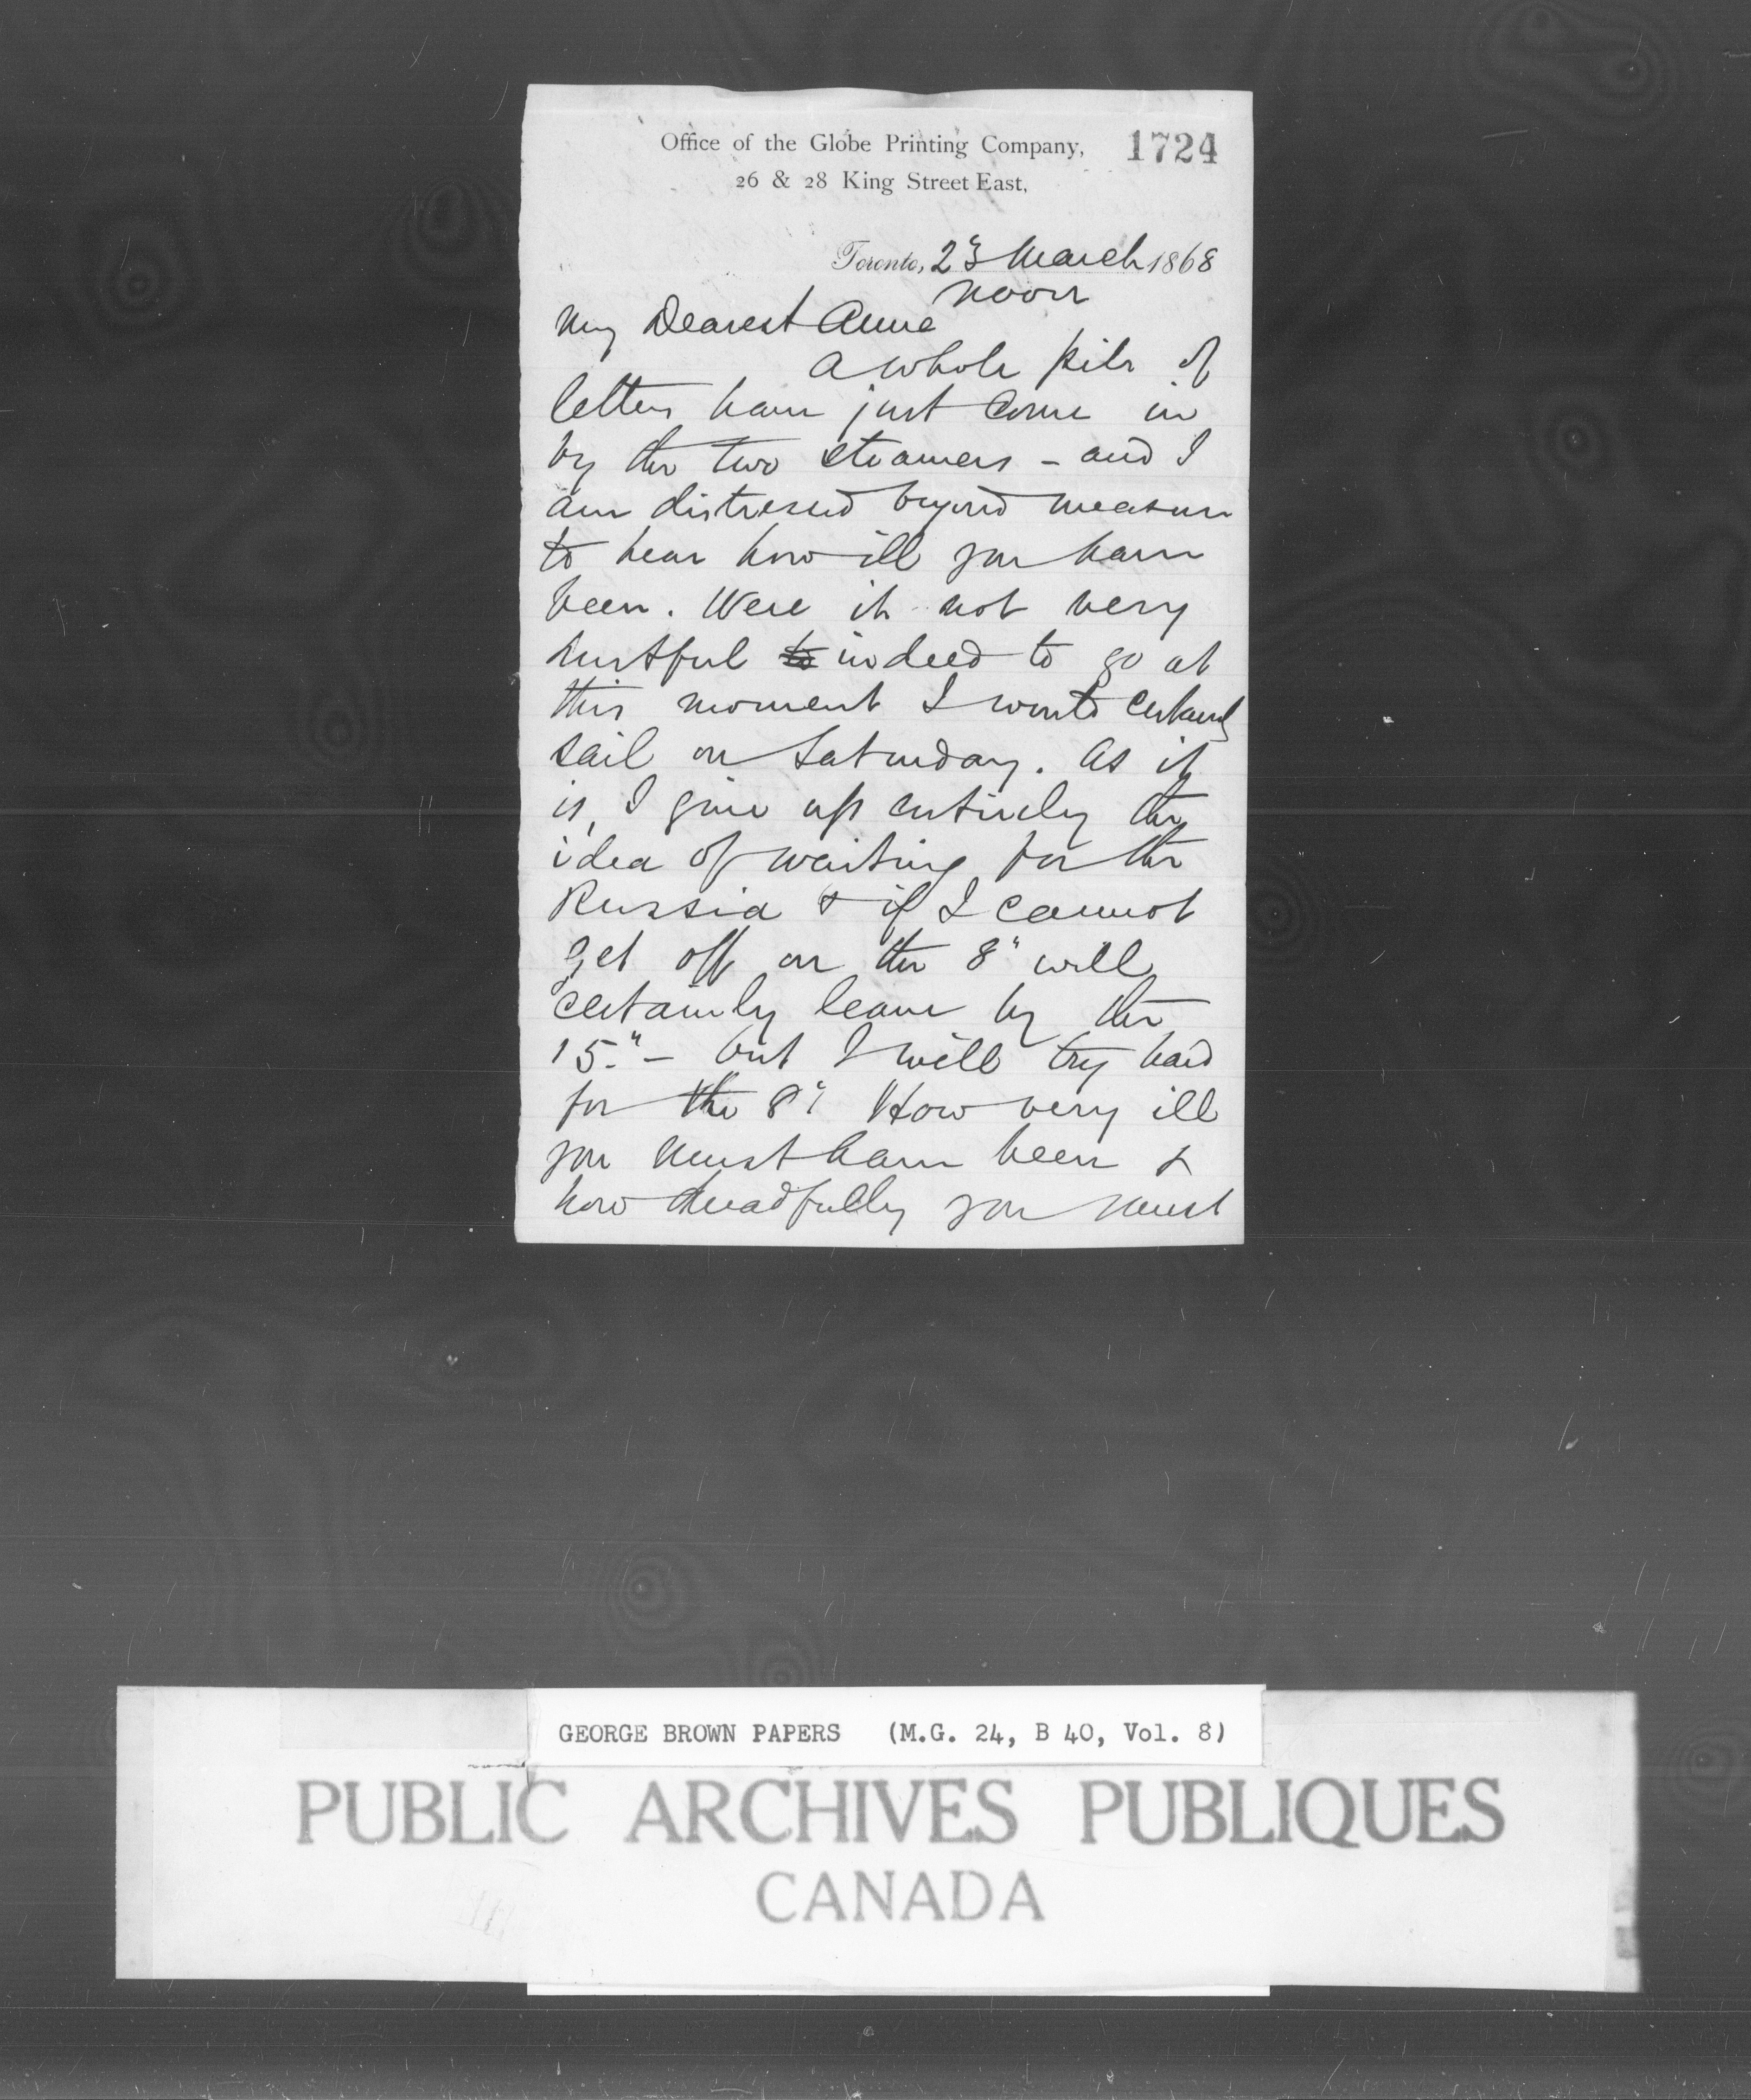 Office of the Globe Printing Company, 1724
26 & 28 King Street East,
Toronto, 23 March 1868
noon
My Dearest Anne
A whole pile of
letters have just come in
by the two steamers - and I
am distressed beyond measure
to hear how ill you have
been. Were it not very
hurtful to indeed to go at
this moment I would certainly
sail on Saturday. As it
is, I give up entirely the
idea of waiting for the
Russia & if I cannot
get off on the 8" will
certainly leave by the
15." - but I will try hard
for the 8" How very ill
you must have been &
how dreadfully you must
GEORGE BROWN PAPERS (M.G. 24, B 40, Vol. 8)
PUBLIC ARCHIVES PUBLIQUES
CANADA